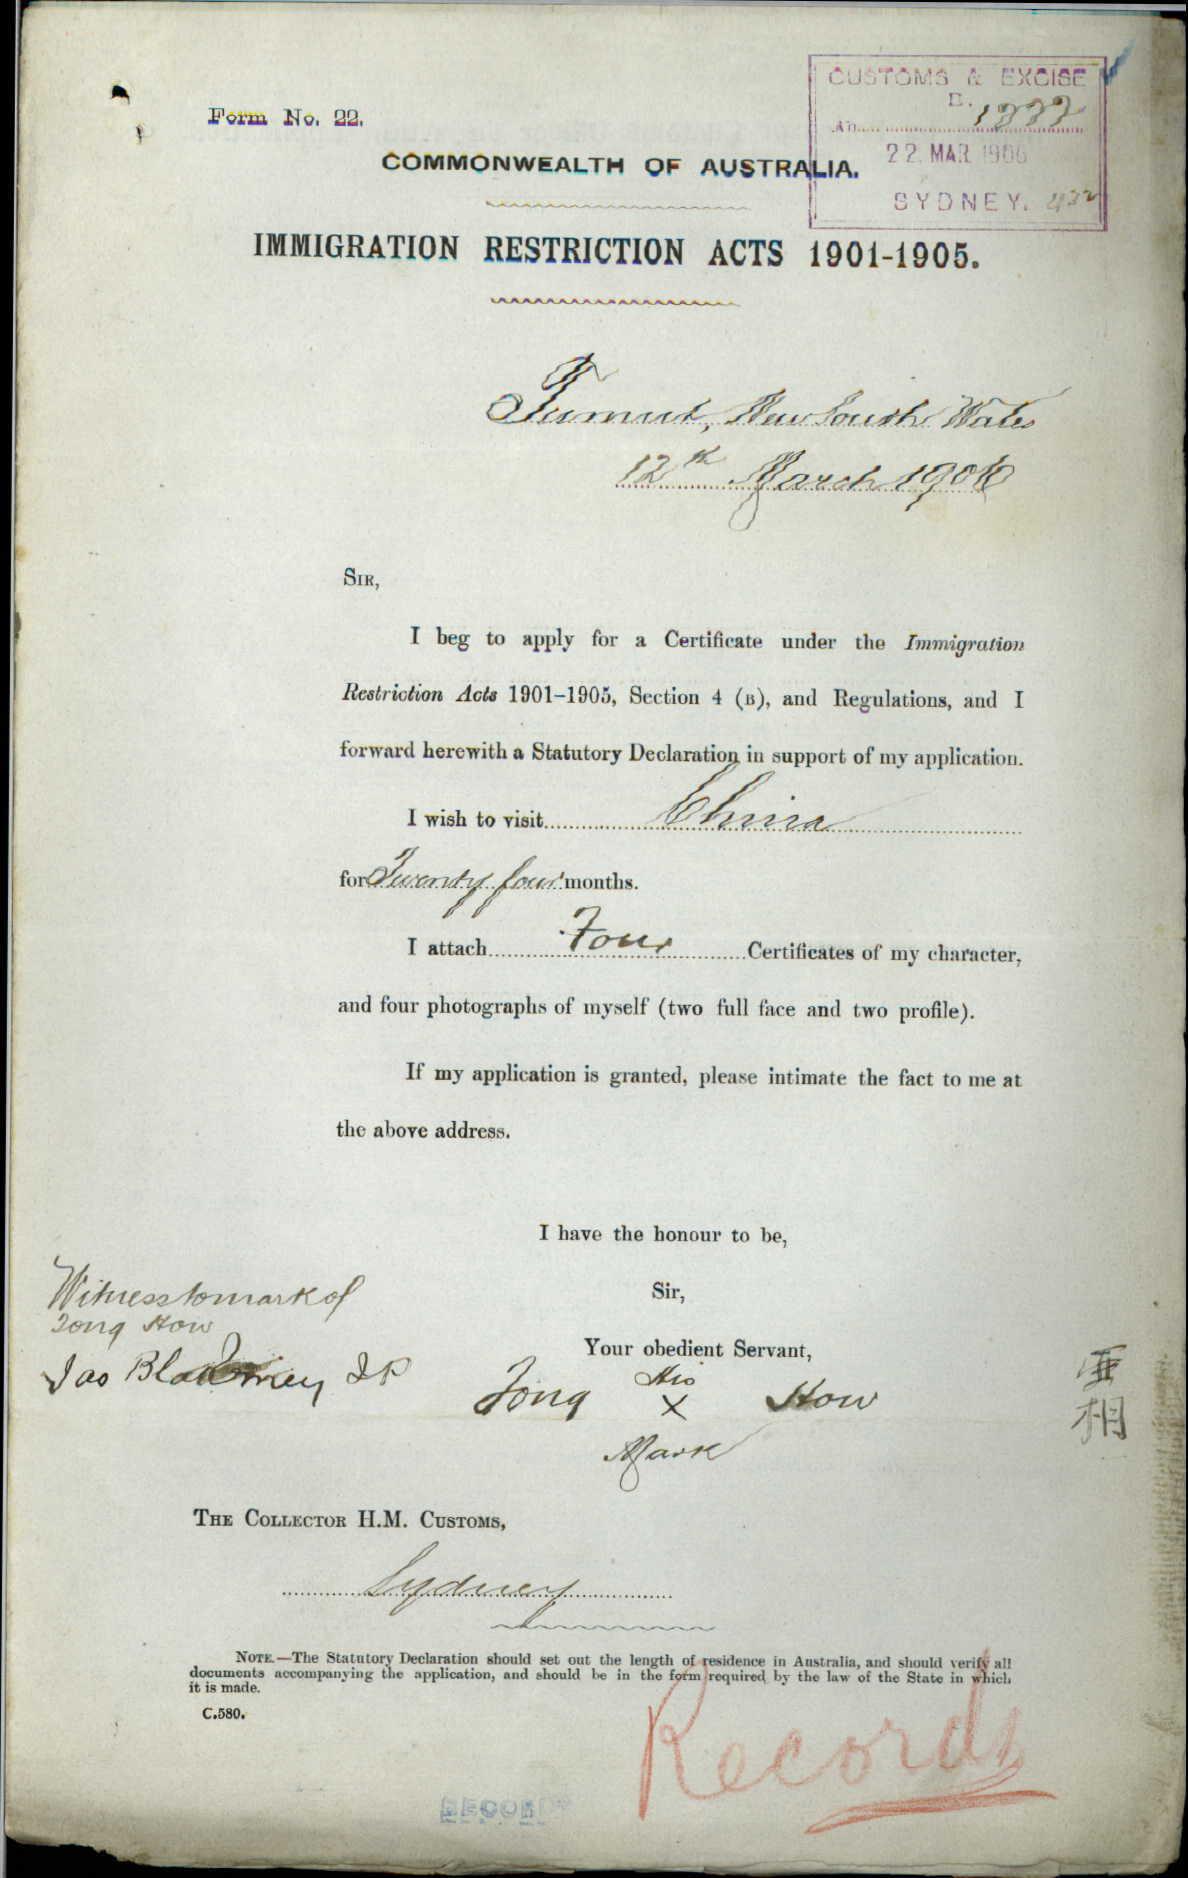 CUSTOMS & EXCISE
Form No. 22.
22 MAR 1906
COMMONWEALTH OF AUSTRALIA.
SYDNEY. 432
IMMIGRATION RESTRICTION ACTS 1901-1905.
Tumut, New South Wales
12th March 1906
SIR,
I beg to apply for a Certificate under the Immigration
Restriction Acts 1901-1905, Section 4 (B), and Regulations, and I
forward herewith a Statutory Declaration in support of my application.
I wish to visit China
for Twenty four months.
I attach Four Certificates of my character,
and four photographs of myself (two full face and two profile).
If my application is granted, please intimate the fact to me at
the above address.
I have the honour to be,
Sir,
Your obedient Servant,
Witness to mark of
Tong How
Jas JP
His
Tong X How
Mark
亜
相
THE COLLECTOR H.M. CUSTOMS,
Sydney
NOTE.—The Statutory Declaration should set out the length of residence in Australia, and should verify all
documents accompanying the application, and should be in the form required by the law of the State in which
it is made.
C.580.
Records
RECORDS